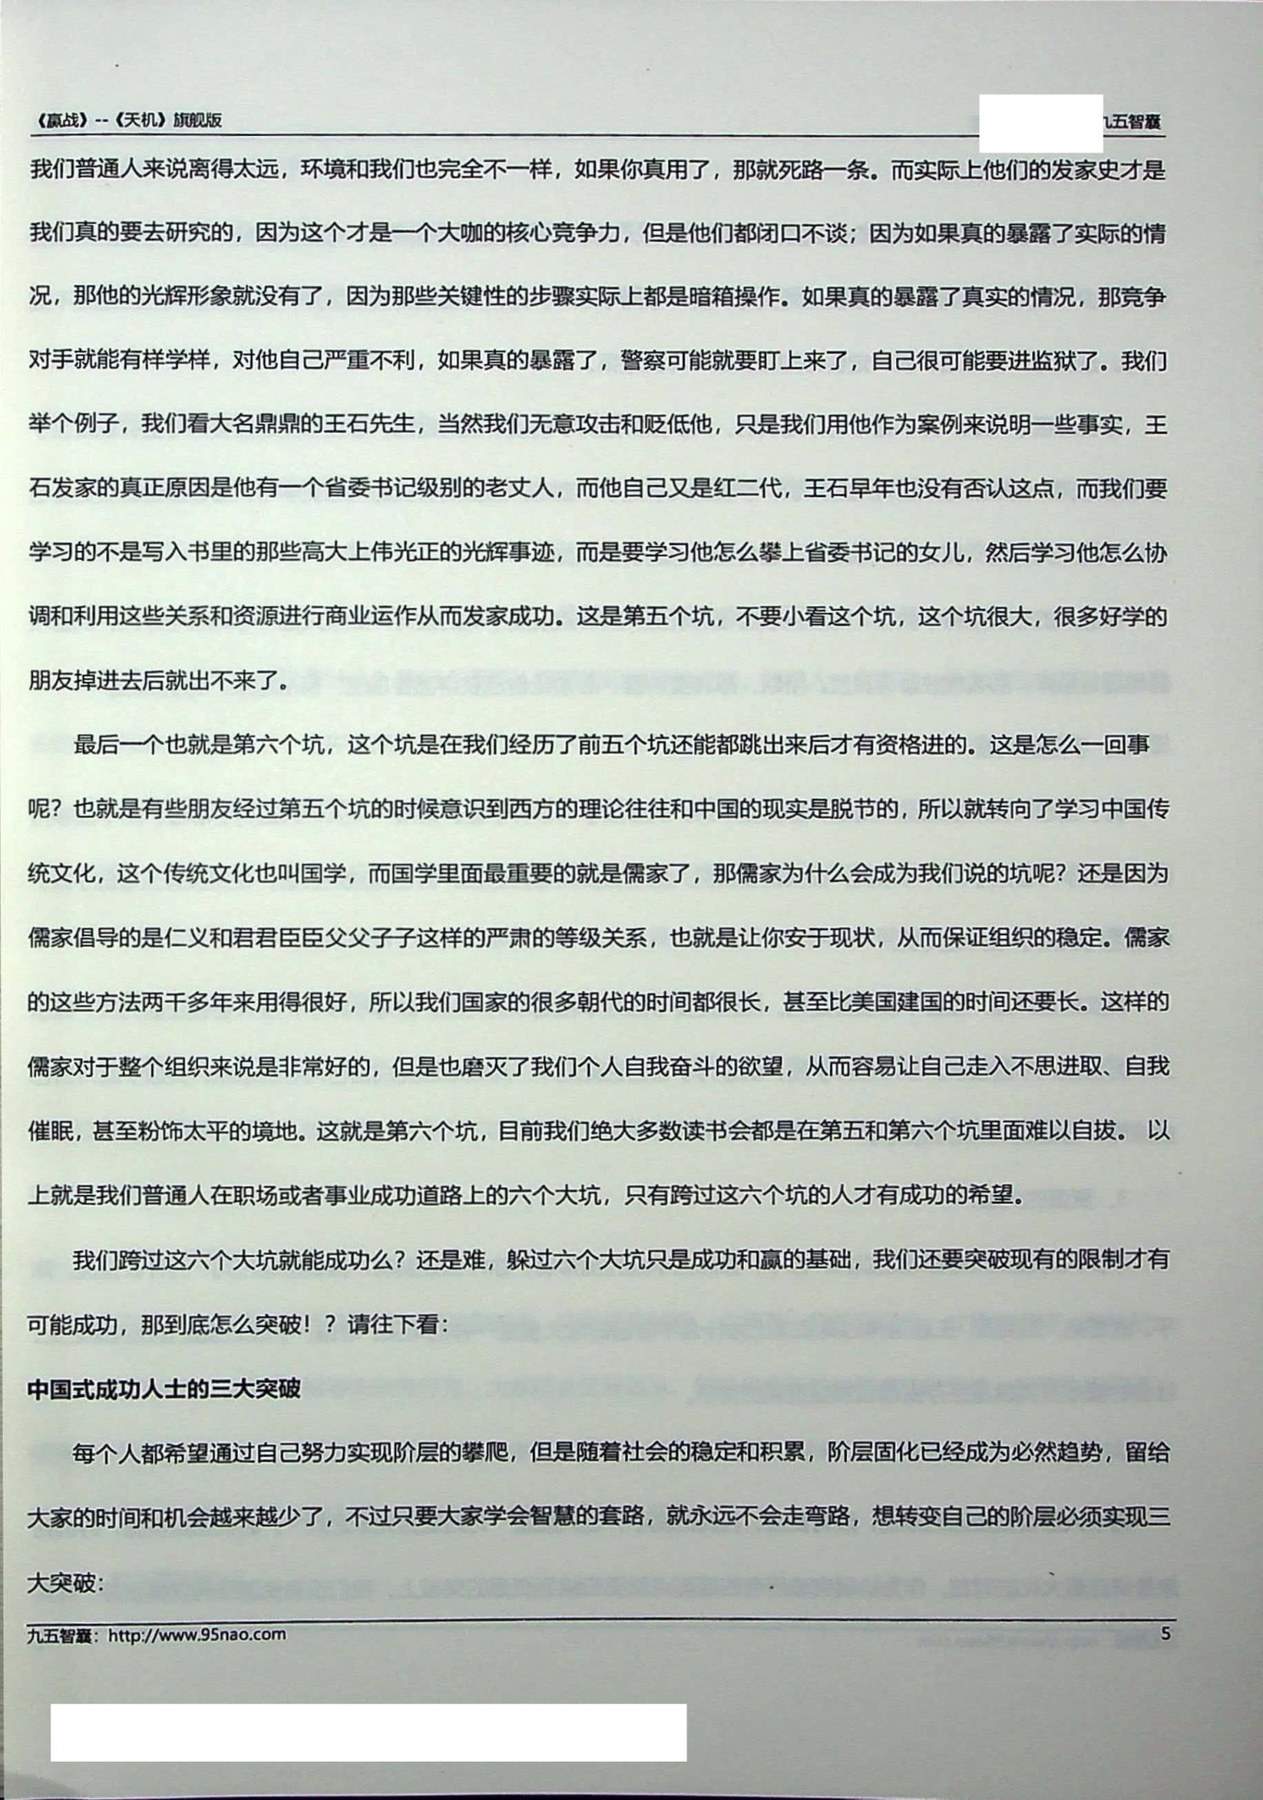 《赢战》--《天机》旗舰版
九五智囊
我们普通人来说离得太远，环境和我们也完全不一样，如果你真用了，那就死路一条。而实际上他们的发家史才是
我们真的要去研究的，因为这个才是一个大咖的核心竞争力，但是他们都闭口不谈；因为如果真的暴露了实际的情
况，那他的光辉形象就没有了，因为那些关键性的步骤实际上都是暗箱操作。如果真的暴露了真实的情况，那竞争
对手就能有样学样，对他自己严重不利，如果真的暴露了，警察可能就要盯上来了，自己很可能要进监狱了。我们
举个例子，我们看大名鼎鼎的王石先生，当然我们无意攻击和贬低他，只是我们用他作为案例来说明一些事实，王
石发家的真正原因是他有一个省委书记级别的老丈人，而他自己又是红二代，王石早年也没有否认这点，而我们要
学习的不是写入书里的那些高大上伟光正的光辉事迹，而是要学习他怎么攀上省委书记的女儿，然后学习他怎么协
调和利用这些关系和资源进行商业运作从而发家成功。这是第五个坑，不要小看这个坑，这个坑很大，很多好学的
朋友掉进去后就出不来了。
最后一个也就是第六个坑，这个坑是在我们经历了前五个坑还能都跳出来后才有资格进的。这是怎么一回事
呢？也就是有些朋友经过第五个坑的时候意识到西方的理论往往和中国的现实是脱节的，所以就转向了学习中国传
统文化，这个传统文化也叫国学，而国学里面最重要的就是儒家了，那儒家为什么会成为我们说的坑呢？还是因为
儒家倡导的是仁义和君君臣臣父父子子这样的严肃的等级关系，也就是让你安于现状，从而保证组织的稳定。儒家
的这些方法两千多年来用得很好，所以我们国家的很多朝代的时间都很长，甚至比美国建国的时间还要长。这样的
儒家对于整个组织来说是非常好的，但是也磨灭了我们个人自我奋斗的欲望，从而容易让自己走入不思进取、自我
催眠，甚至粉饰太平的境地。这就是第六个坑，目前我们绝大多数读书会都是在第五和第六个坑里面难以自拔。 以
上就是我们普通人在职场或者事业成功道路上的六个大坑，只有跨过这六个坑的人才有成功的希望。
我们跨过这六个大坑就能成功么？还是难，躲过六个大坑只是成功和赢的基础，我们还要突破现有的限制才有
可能成功，那到底怎么突破！？请往下看：
中国式成功人士的三大突破
每个人都希望通过自己努力实现阶层的攀爬，但是随着社会的稳定和积累，阶层固化已经成为必然趋势，留给
大家的时间和机会越来越少了，不过只要大家学会智慧的套路，就永远不会走弯路，想转变自己的阶层必须实现三
大突破：
九五智囊：http://www.95nao.com
5